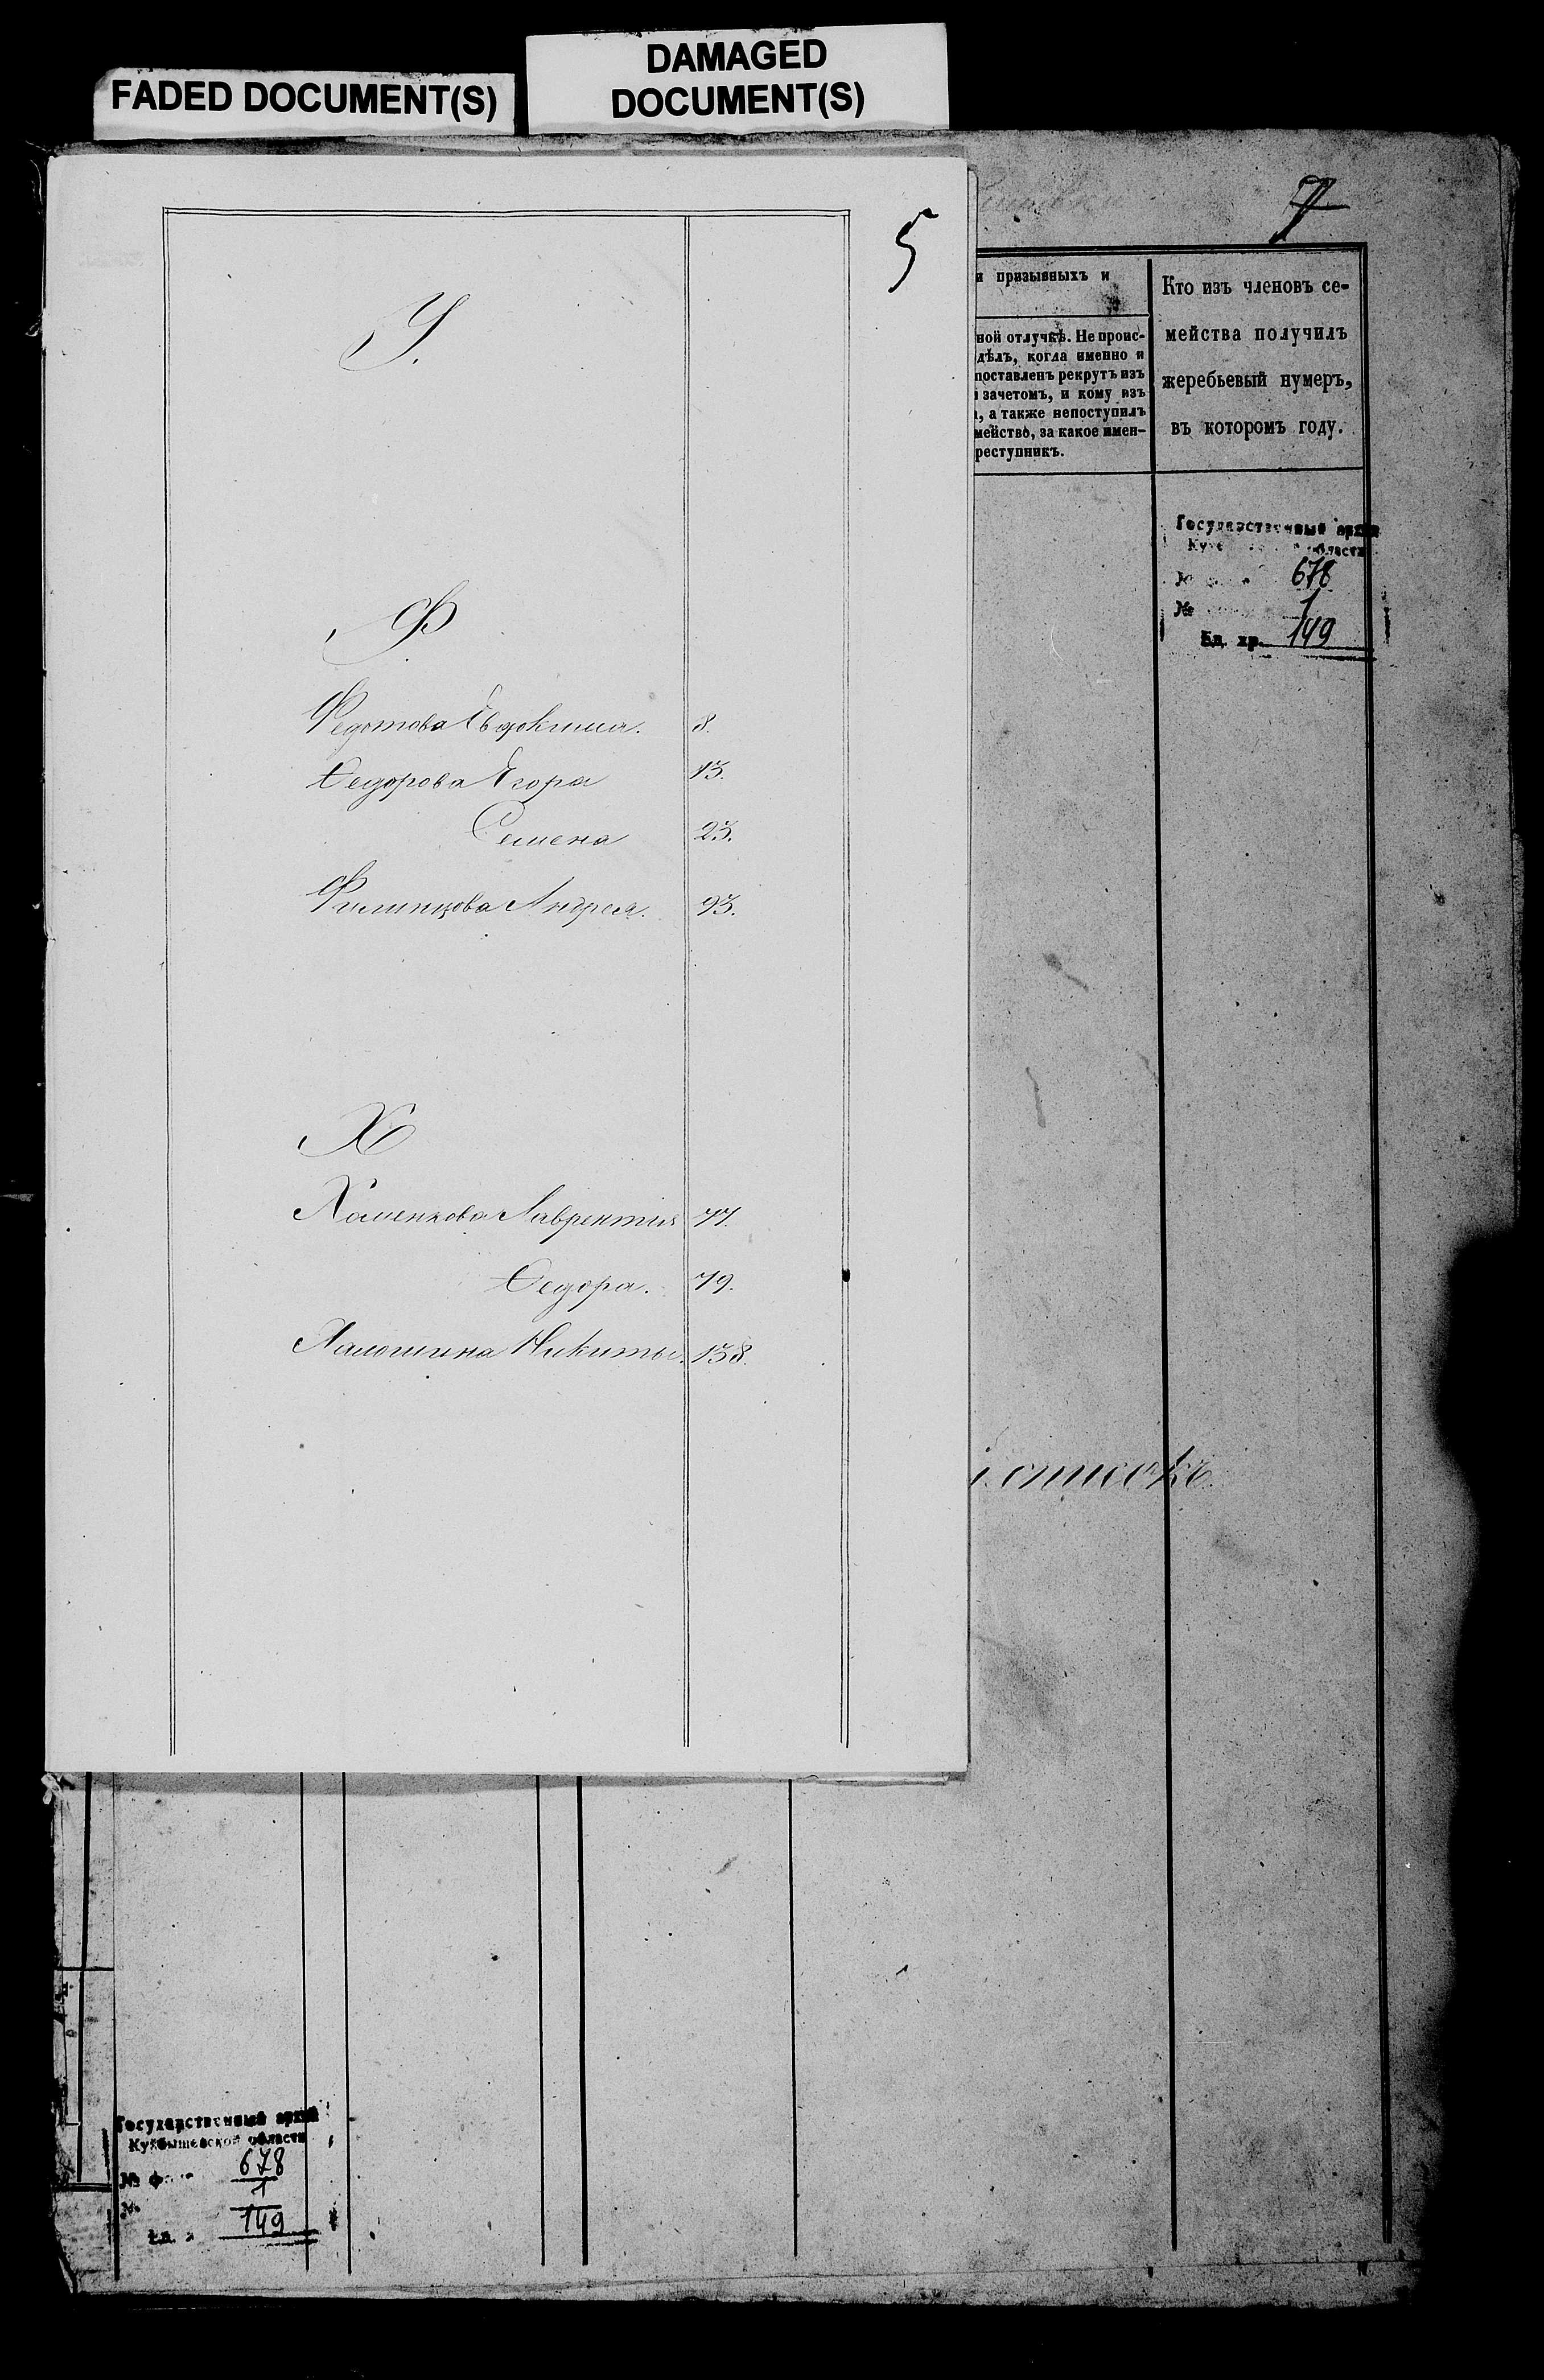 FADED DOCUMENT(S)
DAMAGED
DOCUMENT(S)
5
У.
Ф
Федотова Евдокима. 8.
Ѳедорова Егора 13.
Семена 23.
Филипцова Андрея. 93.
Х
Хаменкова Лаврентия 77.
Ѳедора. 79.
Халошина Никиты. 138.
7
и призывныхъ и
ной отлучкѣ. Не проис-
дѣлъ, когда именно и
поставленъ рекрутъ изъ
зачетомъ, и кому изъ
а также непоступилъ
мейство, за какое имен-
реступникъ.
Кто изъ членовъ се-
мейства получилъ
жеребьевый нумеръ,
въ которомъ году.
Государственный архив
области
№ 678
№ 1
Ед. хр. 149
списокъ.
Государственный архив
Куйбышевской области
№ 678
№ 1
Ед. 149